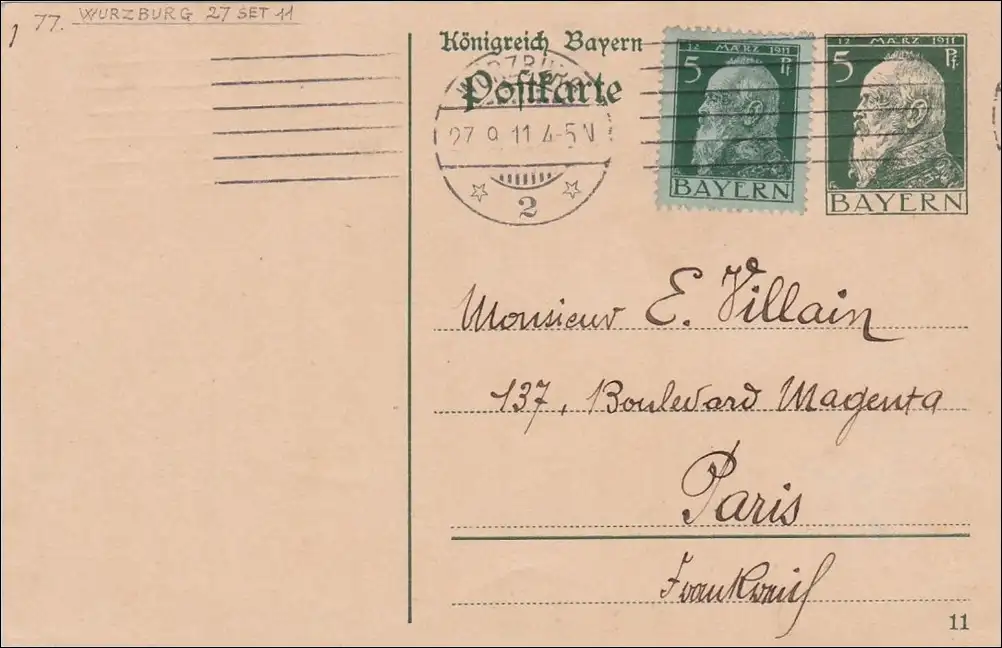 77. WURZBURG 27 SET 11
Königreich Bayern
Postkarte
WÜRZBURG
27.9.11.4-5N
2
12 MÄRZ 1911
5 Pf
BAYERN
12 MÄRZ 1911
5 Pf.
BAYERN
Monsieur E. Villain
137, Boulevard Magenta
Paris
Frankreich
11